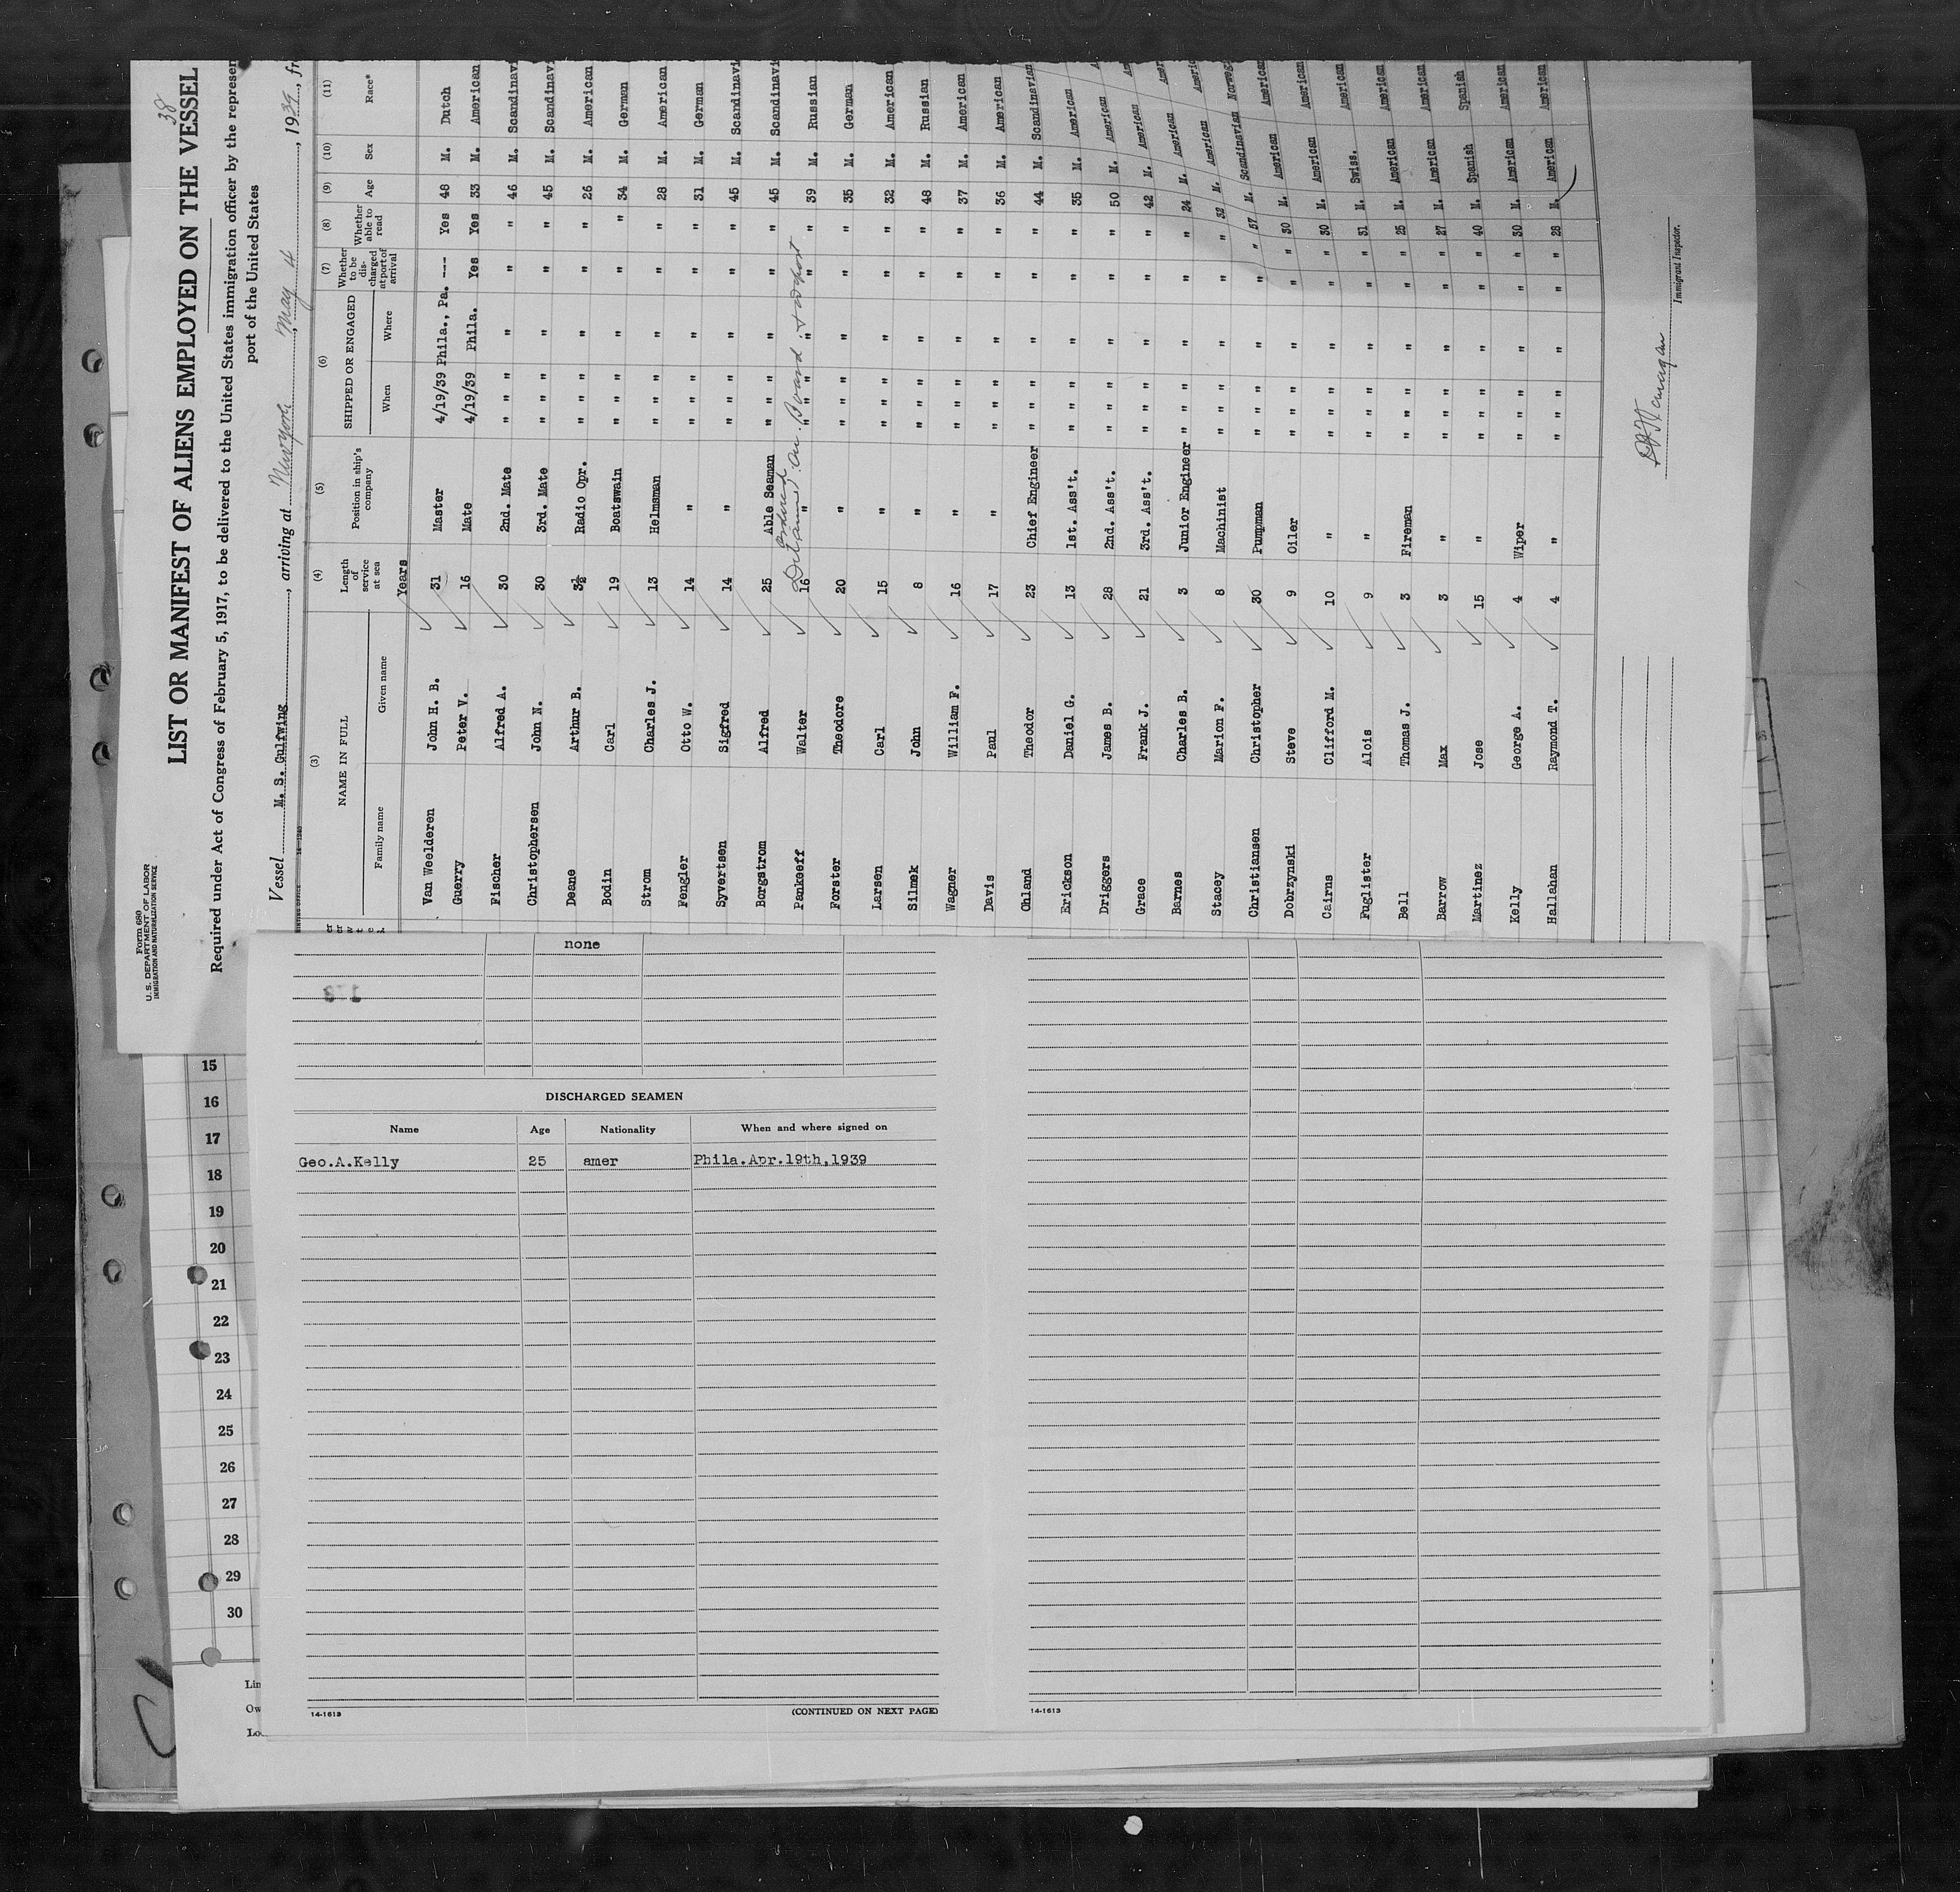 38
Form 680
U. S. DEPARTMENT OF LABOR
IMMIGRATION AND NATURALIZATION SERVICE
LIST OR MANIFEST OF ALIENS EMPLOYED ON THE VESSEL
Required under Act of Congress of February 5, 1917, to be delivered to the United States immigration officer by the represen
port of the United States
Vessel M. S. Gulfwing, arriving at Newyork, May 4, 1939, fr
(3) (4) (5) (6) (7) (8) (9) (10) (11)
NAME IN FULL Length of service at sea Position in ship's company SHIPPED OR ENGAGED Whether to be discharged at port of arrival Whether able to read Age Sex Race*
Family name Given name When Where
Years
Van Weelderen John H. B. 31 Master 4/19/39 Phila., Pa. --- Yes 48 M. Dutch
Guerry Peter V. 16 Mate 4/19/39 Phila. Yes Yes 33 M. American
Fischer Alfred A. 30 2nd. Mate " " " " " " 46 M. Scandinavi
Christophersen John N. 30 3rd. Mate " " " " " " 45 M. Scandinavi
Deane Arthur B. 3½ Radio Opr. " " " " " " 26 M. American
Bodin Carl 19 Boatswain " " " " " " 34 M. German
Strom Charles J. 13 Helmsman " " " " " " 28 M. American
Fengler Otto W. 14 " " " " " " " 31 M. German
Syvertsen Sigfred 14 " " " " " " " 45 M. Scandinavi
Borgstrom Alfred 25 Able Seaman " " " " " " 45 M. Scandinavi
Pankeeff Walter 16 " " " " " " " 39 M. Russian
Ordered Detained on Board
Forster Theodore 20 " " " " " " " 35 M. German
Larsen Carl 15 " " " " " " " 32 M. American
Silmek John 8 " " " " " " " 48 M. Russian
Wagner William F. 16 " " " " " " " 37 M. American
Davis Paul 17 " " " " " " " 36 M. American
Ohland Theodor 23 Chief Engineer " " " " " " 44 M. Scandinavian
Erickson Daniel G. 13 1st. Ass't. " " " " " " 35 M. American A
Driggers James B. 28 2nd. Ass't. " " " " " " 50 M. American Am
Grace Frank J. 21 3rd. Ass't. " " " " " " 42 M. American Amer
Barnes Charles B. 3 Junior Engineer " " " " " " 24 M. American Americ
Stacey Marion F. 8 Machinist " " " " " " 32 M. American Norweg
Christiansen Christopher 30 Pumpman " " " " " " 57 M. Scandinavian American
Dobrzynski Steve 9 Oiler " " " " " " 30 M. American American
Cairns Clifford M. 10 " " " " " " " 30 M. American American
Fuglister Alois 9 " " " " " " " 31 M. Swiss. American
Bell Thomas J. 3 Fireman " " " " " " 25 M. American American
Barrow Max 3 " " " " " " " 27 M. American American
Martinez Jose 15 " " " " " " " 40 M. Spanish Spanish
Kelly George A. 4 Wiper " " " " " " 30 M. American American
Hallahan Raymond T. 4 " " " " " " " 28 M. American American
Immigrant Inspector.
none
DISCHARGED SEAMEN
Name Age Nationality When and where signed on
Geo.A.Kelly 25 amer Phila.Apr.19th,1939
14-1613 (CONTINUED ON NEXT PAGE)
14-1613
15
16
17
18
19
20
21
22
23
24
25
26
27
28
29
30
Lin
Ow
Lo